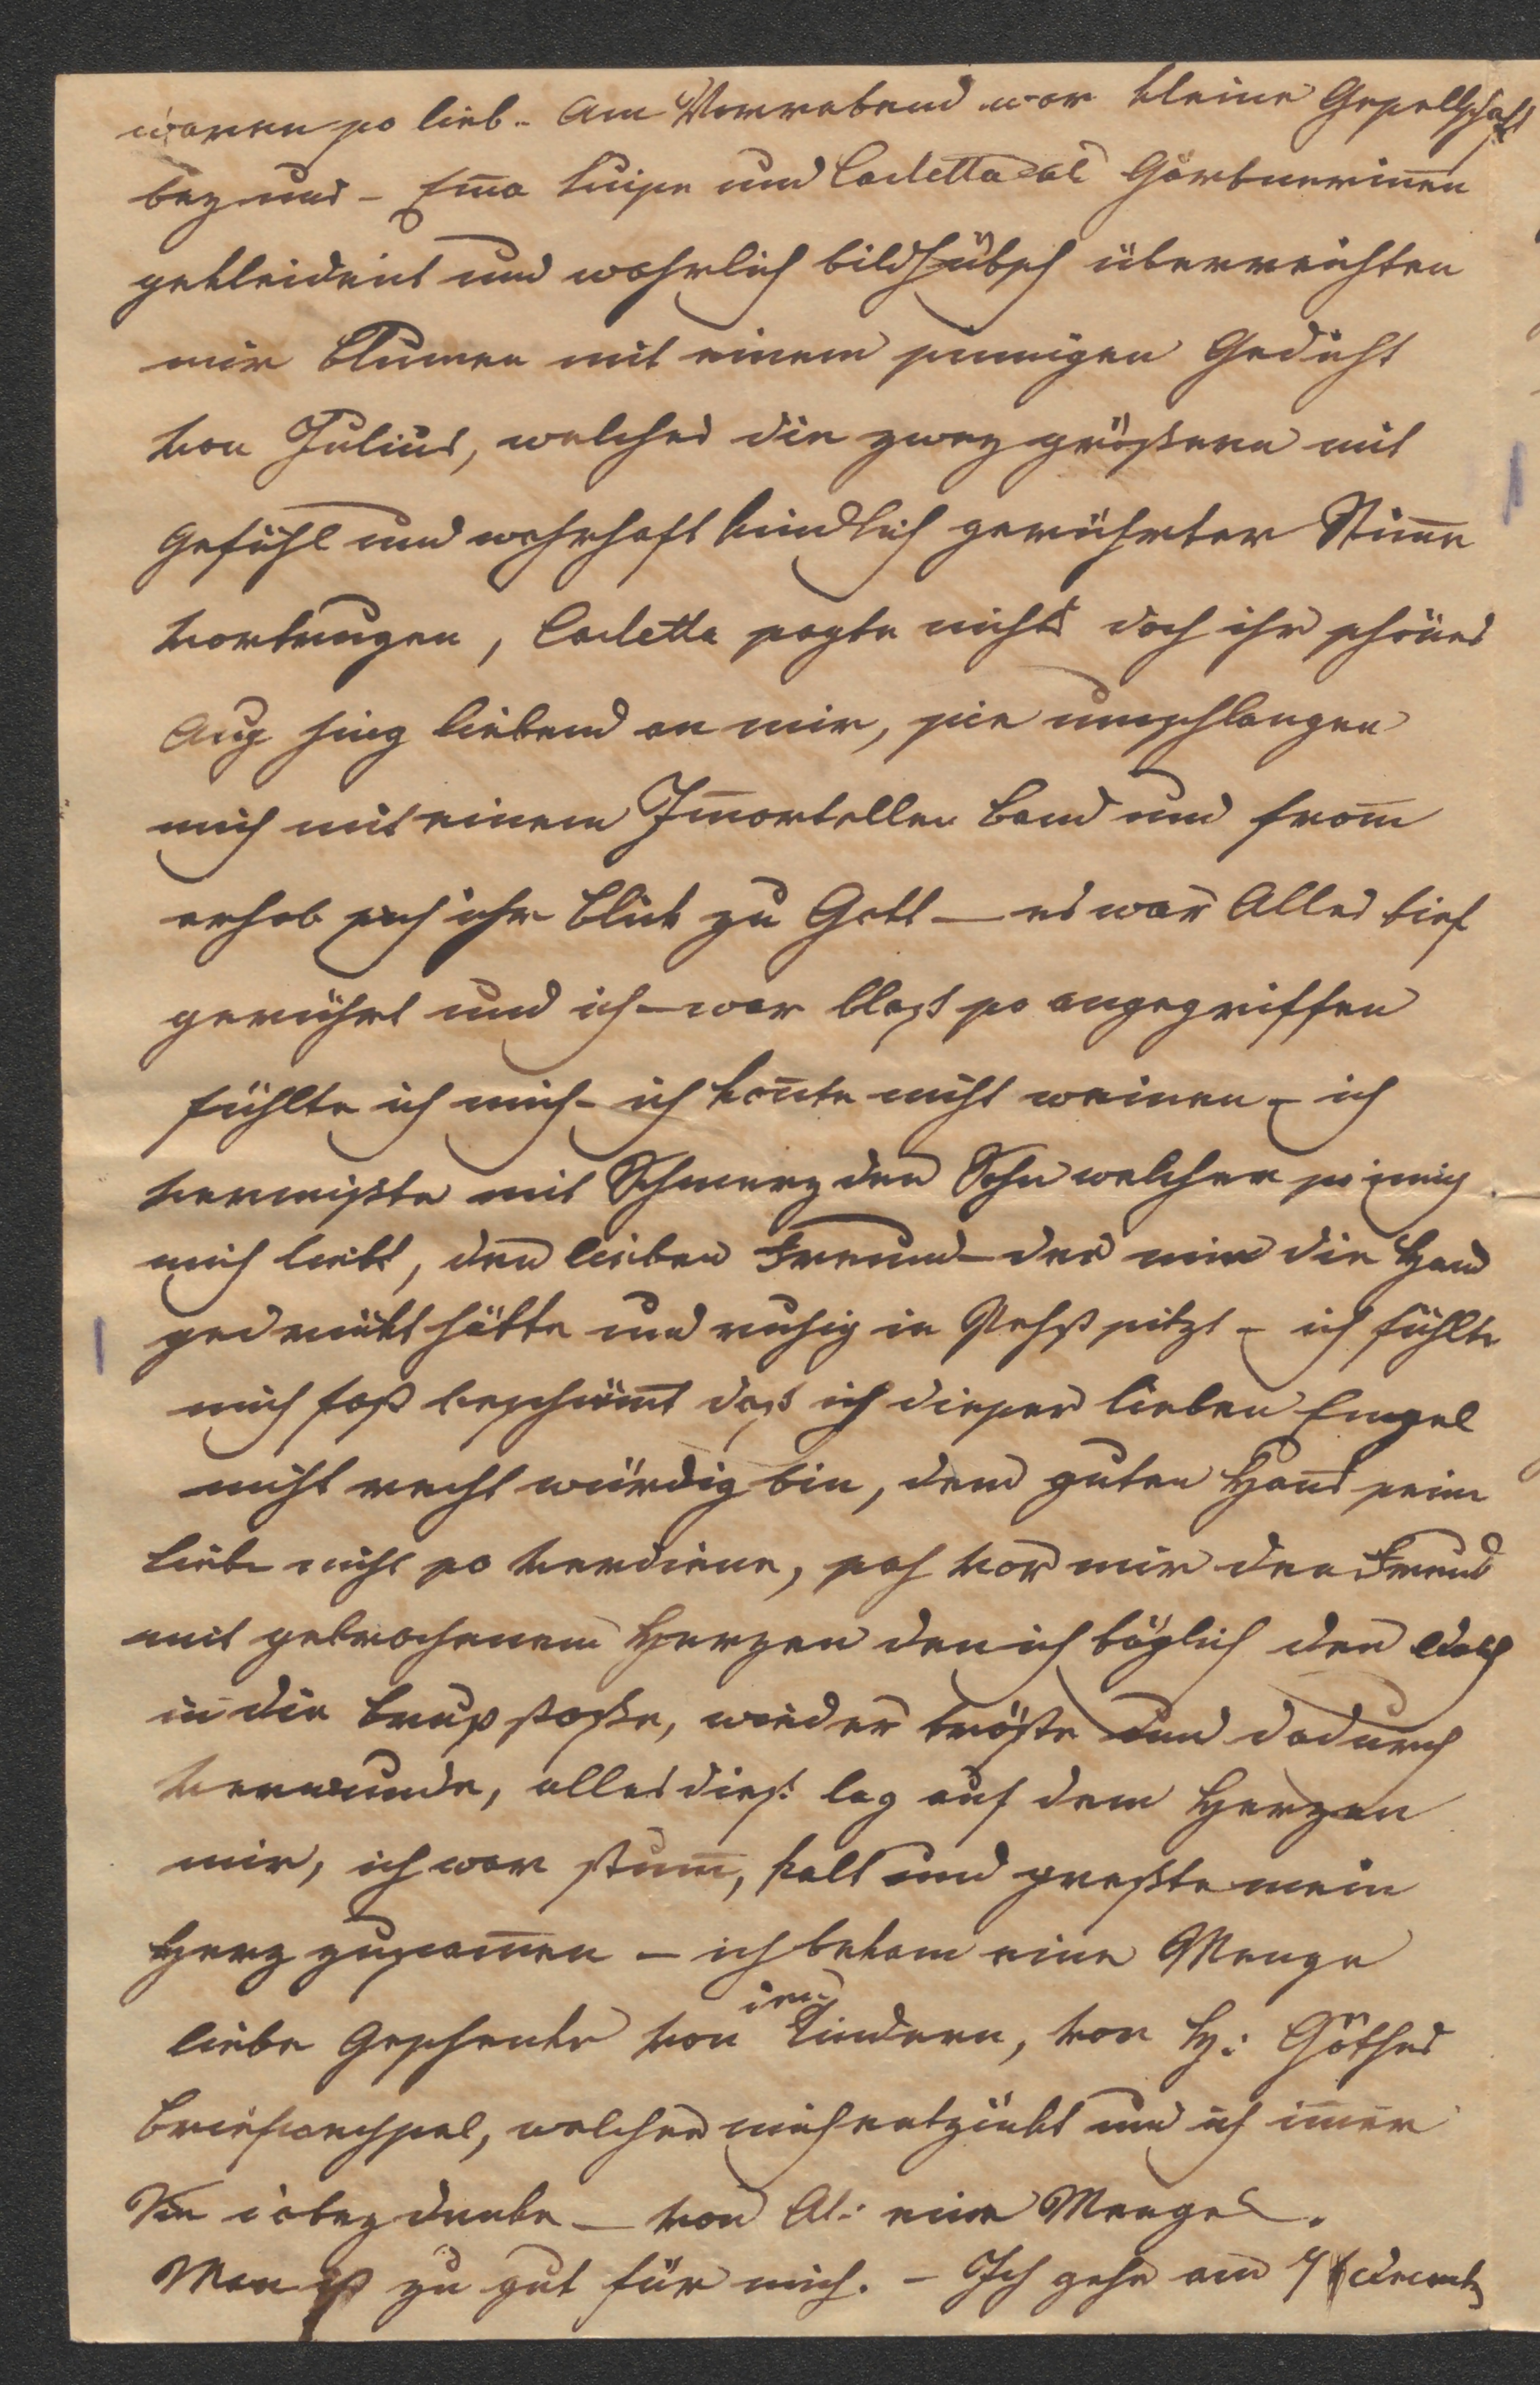 waren so lieb. Am Vorabend war kleine Gesellschaft
bey uns – Em̄a Luise und Carletta als Gärtnerin̄en
gekleident und wahrlich bildhübsch überreichten
mir Blumen mit einem sinnigen Gedicht
von Julius, welches die zwey größern mit
Gefühl und wahrhaft kindlich gerührter Stim̄e
vortrugen, Carletta sagte nichts doch ihr schönes
Aug hing liebend an mir, sie umschlangen
mich mit einem Im̄ortellen Band und from̄
erhob sich ihr Blick zu Gott – es war Alles tief
gerührt und ich – war blaß so angegriffen
fühlte ich mich – ich kon̄te nicht weinen – ich
vermißte mit Schmerz den Sohn welcher so innig
mich liebt, den lieben Freund – der mir die Hand
gedrückt hätte und ruhig in Pesth sitzt – ich fühlte
mich fast beschäm̄t daß ich dieser lieben Engel
nicht recht würdig bin, dem guten Hans seine
Liebe nicht so verdiene, sah vor mir den Freund
mit gebrochenem Herzen den ich täglich den Dolch
in die Brust stoße, wieder tröste und dadurch
verwunde, alles dieß lag auf dem Herzen
mir, ich war stum̄, kalt und preßte mein
Herz zusam̄en – ich bekam eine Menge
liebe Geschenke von den Kindern, von H: Göthes
Briefwechsel, welcher mich entzückt und ich im̄er
Sie dabey denke – von Al: eine Menge.
Man ist zu gut für mich. – Ich gehe am 7